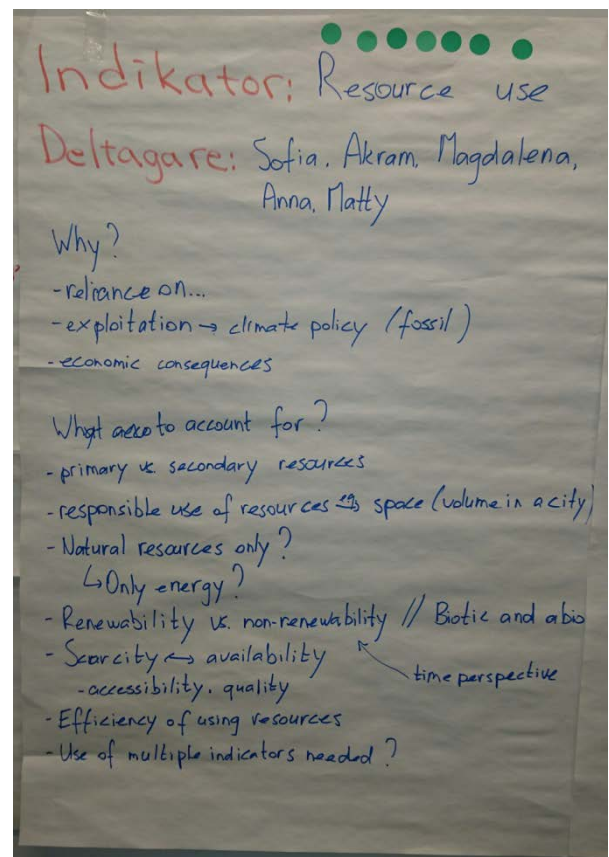 Indikator: Resource use
Deltagare: Sofia, Akram, Magdalena,
Anna, Matty
Why?
- reliance on...
- exploitation → climate policy (fossil)
- economic consequences
What to account for?
- primary vs. secondary resources
- responsible use of resources space (volume in a city)
- Natural resources only?
↳ Only energy?
- Renewability vs. non-renewability // Biotic and abio
- Scarcity ↔ availability
time perspective
- accessibility, quality
- Efficiency of using resources
- Use of multiple indicators needed?